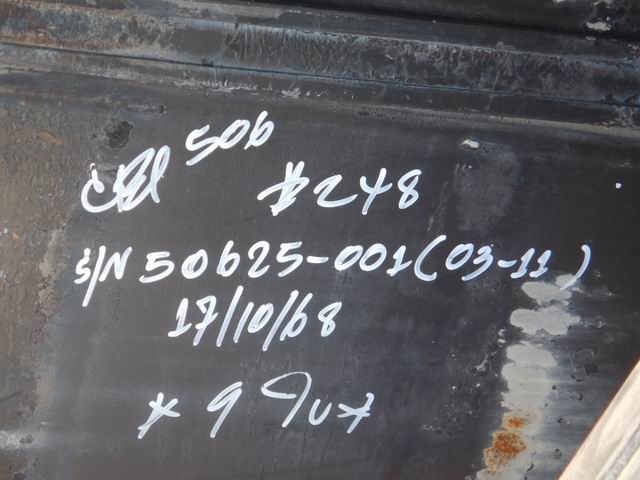 506
#248
S/N 50625-001(03-11)
17/10/68
* 9 ใบ *